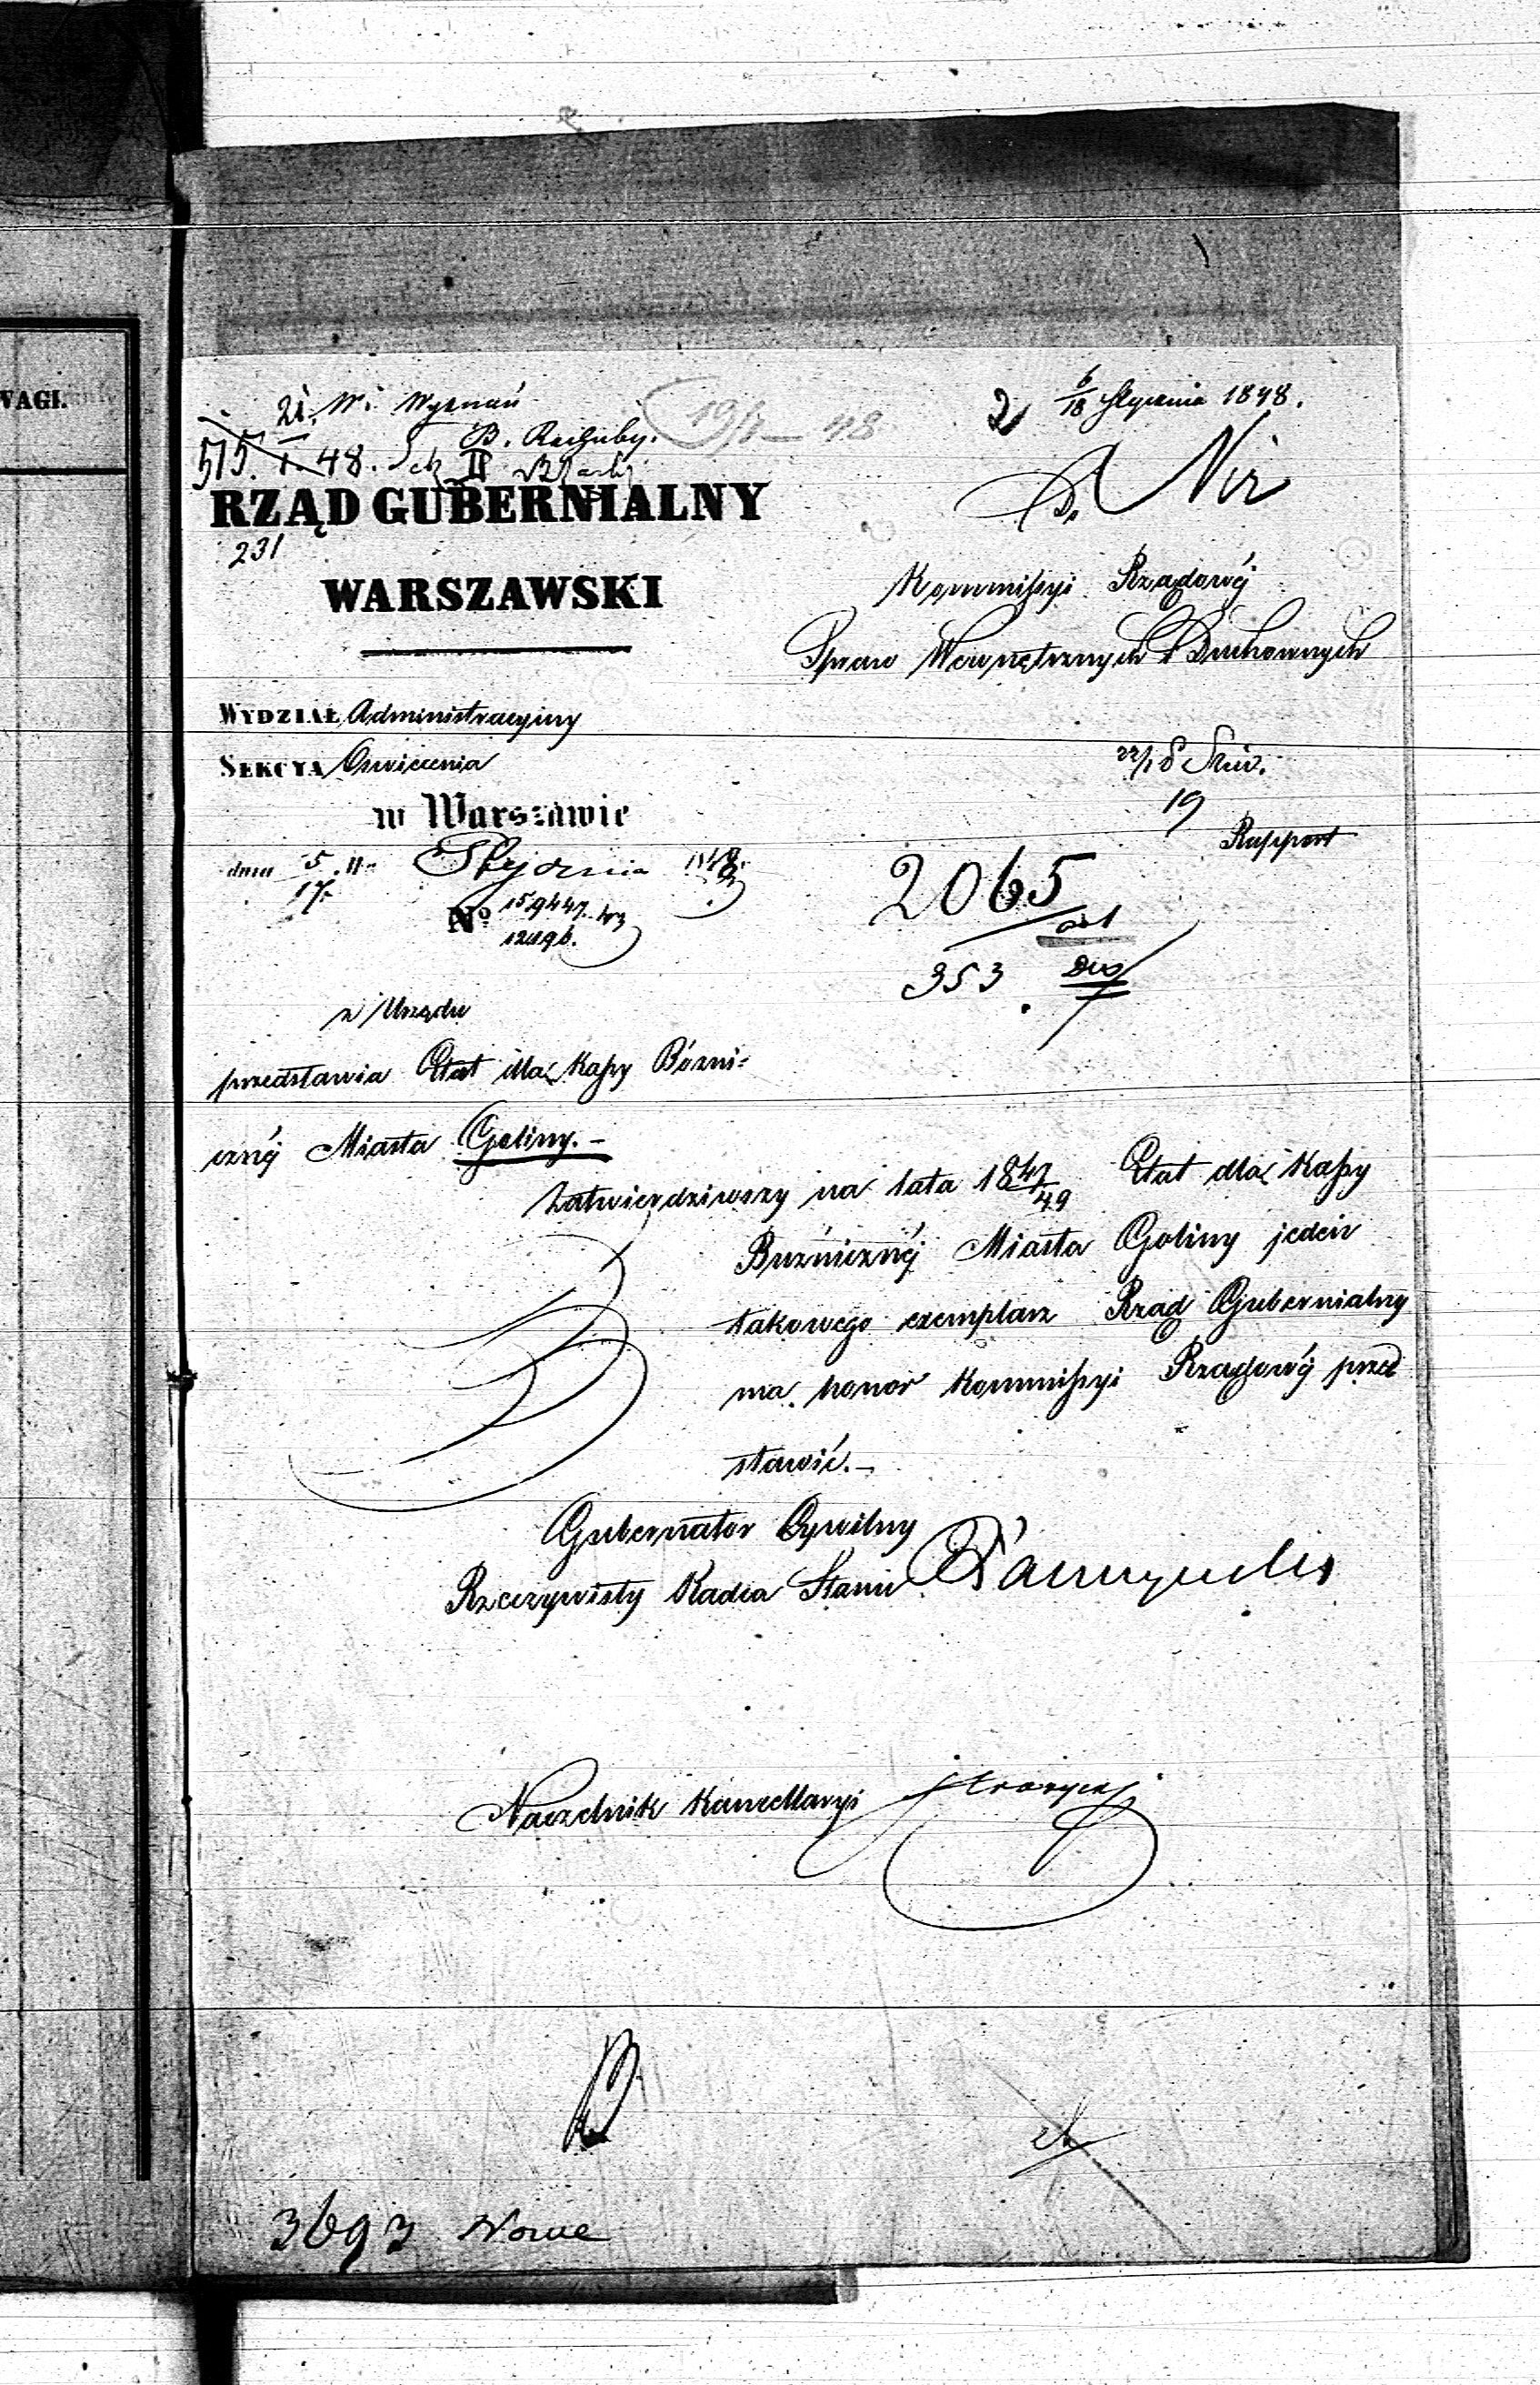 WAGI.
21. W. Wyznań
19/1 — 48
2 6/18 Stycznia 1848.
B. Rachuby.
515. 1. 48. Sek II
RZĄD GUBERNIALNY
231
WARSZAWSKI
Do
Kommissyi Rządowéj
Spraw Wewnętrznych i Duchownych
WYDZIAŁ Administracyjny
SEKCYA Oświecenia
w Warszawie
19
Rapport
dnia 5/17 Stycznia 1848.
2065
No 159447
12096.
353
z Urzędu
przedstawia Etat dla Kassy Bózni-
cznéj Miasta Goliny.—
Zatwierdziwszy na lata 1847/49 Etat dla Kassy
Buźnicznéj Miasta Goliny jeden
takowego exemplarz Rząd Gubernialny
ma honor Kommissyi Rządowéj przed
stawić.—
Gubernator Cywilny
Rzeczywisty Radca Stanu
Naczelnik Kancellaryi
3693 Nowe